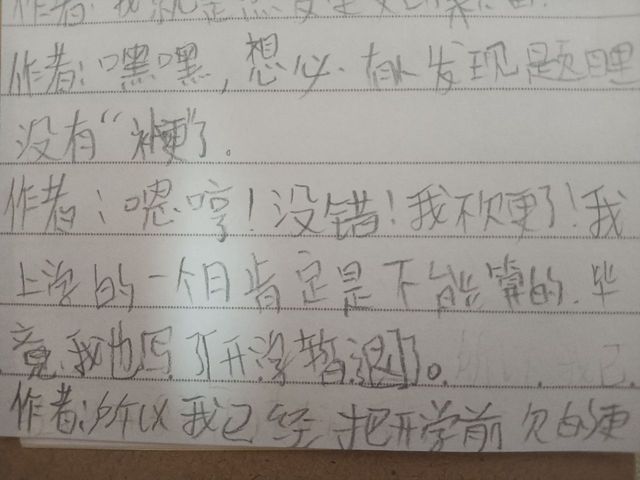 作者:我就是
作者:嘿嘿,想必.有人发现题目里
没有“补更”了。
作者:嗯哼!没错!我不欠更了!我
上学的一个月肯定是不能算的.毕
竟,我也写了“开学暂退”了。
作者:所以我已经把开学前欠的更